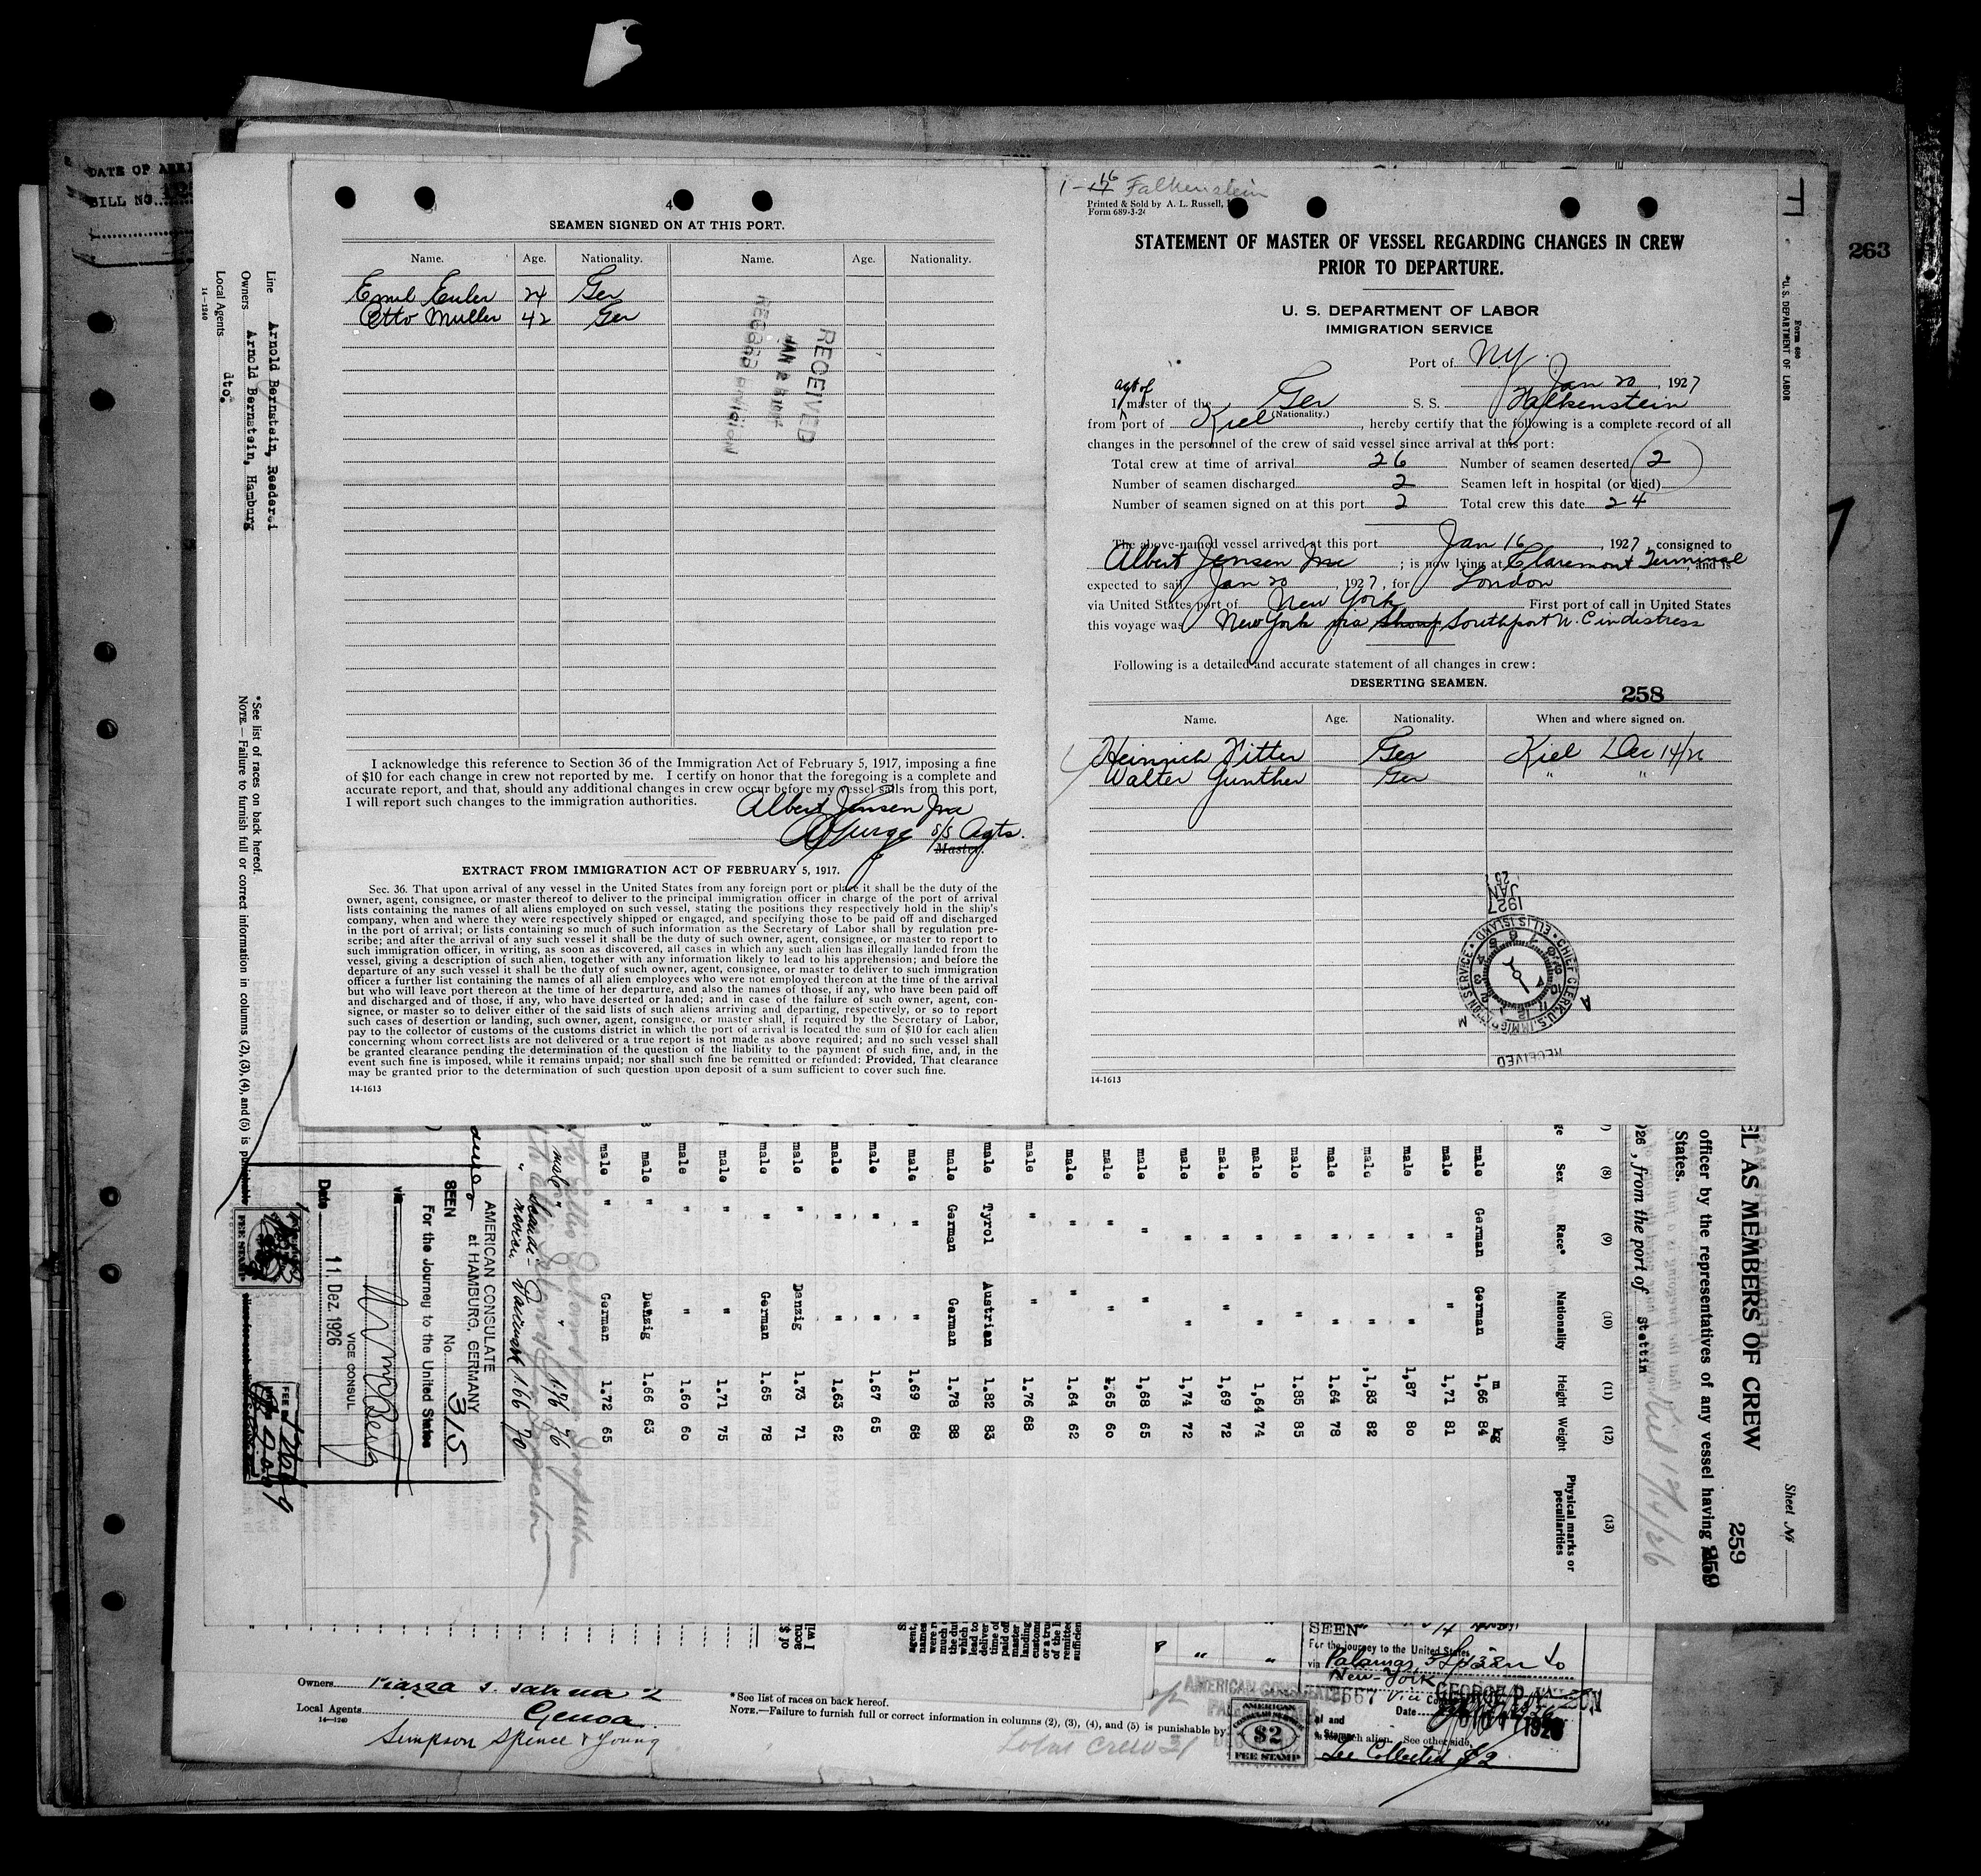 4
SEAMEN SIGNED ON AT THIS PORT.
Name. Age. Nationality. Name. Age. Nationality.
Emil Euler 24 Ger
Otto Muller 42 Ger
RECEIVED
JAN 2
RECORD DIVISION
I acknowledge this reference to Section 36 of the Immigration Act of February 5, 1917, imposing a fine
of $10 for each change in crew not reported by me. I certify on honor that the foregoing is a complete and
accurate report, and that, should any additional changes in crew occur before my vessel sails from this port,
I will report such changes to the immigration authorities.
Albert Jensen Inc
S/S Agts.
Master.
EXTRACT FROM IMMIGRATION ACT OF FEBRUARY 5, 1917.
Sec. 36. That upon arrival of any vessel in the United States from any foreign port or place it shall be the duty of the
owner, agent, consignee, or master thereof to deliver to the principal immigration officer in charge of the port of arrival
lists containing the names of all aliens employed on such vessel, stating the positions they respectively hold in the ship's
company, when and where they were respectively shipped or engaged, and specifying those to be paid off and discharged
in the port of arrival; or lists containing so much of such information as the Secretary of Labor shall by regulation pre-
scribe; and after the arrival of any such vessel it shall be the duty of such owner, agent, consignee, or master to report to
such immigration officer, in writing, as soon as discovered, all cases in which any such alien has illegally landed from the
vessel, giving a description of such alien, together with any information likely to lead to his apprehension; and before the
departure of any such vessel it shall be the duty of such owner, agent, consignee, or master to deliver to such immigration
officer a further list containing the names of all alien employees who were not employed thereon at the time of the arrival
but who will leave port thereon at the time of her departure, and also the names of those, if any, who have been paid off
and discharged and of those, if any, who have deserted or landed; and in case of the failure of such owner, agent, con-
signee, or master so to deliver either of the said lists of such aliens arriving and departing, respectively, or so to report
such cases of desertion or landing, such owner, agent, consignee, or master, shall, if required by the Secretary of Labor,
pay to the collector of customs of the customs district in which the port of arrival is located the sum of $10 for each alien
concerning whom correct lists are not delivered or a true report is not made as above required; and no such vessel shall
be granted clearance pending the determination of the question of the liability to the payment of such fine, and, in the
event such fine is imposed, while it remains unpaid; nor shall such fine be remitted or refunded: Provided, That clearance
may be granted prior to the determination of such question upon deposit of a sum sufficient to cover such fine.
14-1613
1-16 Falkenstein
Printed & Sold by A. L. Russell,
Form 689-3-24
STATEMENT OF MASTER OF VESSEL REGARDING CHANGES IN CREW
PRIOR TO DEPARTURE.
U. S. DEPARTMENT OF LABOR
IMMIGRATION SERVICE
Port of N.Y.
Jan 20, 1927
agt of
I master of the Ger S. S. Falkenstein
(Nationality.)
from port of Kiel, hereby certify that the following is a complete record of all
changes in the personnel of the crew of said vessel since arrival at this port:
Total crew at time of arrival 26 Number of seamen deserted 2
Number of seamen discharged 2 Seamen left in hospital (or died)
Number of seamen signed on at this port 2 Total crew this date 24
The above-named vessel arrived at this port Jan 16, 1927, consigned to
Albert Jensen Inc; is now lying at Claremont Terminal, and is
expected to sail Jan 20, 1927, for London
via United States port of New York First port of call in United States
this voyage was New York via Southport N. C in distress
Following is a detailed and accurate statement of all changes in crew:
DESERTING SEAMEN.
258
Name. Age. Nationality. When and where signed on.
Heinrich Vitter Ger Kiel Dec 14/26
Walter Gunther Ger " "
1927
JAN
25
CHIEF CLERK, U.S. IMMIGRATION SERVICE • ELLIS ISLAND •
A M
RECEIVED
14-1613
263
DATE OF
BILL NO.
Form 680
U. S. DEPARTMENT OF LABOR
Sheet No
259
EL AS MEMBERS OF CREW
officer by the representatives of any vessel having 259
States.
926, from the port of Stettin
Kiel 12/14/26
(8) (9) (10) (11) (12) (13)
Sex Race* Nationality Height Weight Physical marks or peculiarities
m kg
male German German 1,66 84
male " " 1,71 81
male " " 1,87 80
male " " 1,83 82
male " " 1.64 78
male " " 1.85 85
male " " 1,64 74
male " " 1,69 72
male " " 1,74 72
male " " 1,68 65
male " " 1.65 60
male " " 1.64 62
male " " 1.76 68
male Tyrol Austrian 1.82 83
male German German 1.78 88
male " " 1.69 68
male " " 1.67 65
male " " 1.63 62
male " Danzig 1.73 71
male " German 1.65 78
male " " 1.71 75
male " " 1.60 60
male " Danzig 1.66 63
male " German 1.72 65
male 1.76 76
1.66 70
AMERICAN CONSULATE
at HAMBURG, GERMANY
SEEN No. 315
For the Journey to the United States
via
VICE CONSUL
Date 11. Dez. 1926
FEE STAMP
Line Arnold Bernstein, Reederei
Owners Arnold Bernstein, Hamburg
Local Agents dto.
14-1240
*See list of races on back hereof.
NOTE.—Failure to furnish full or correct information in columns (2), (3), (4), and (5) is punishable
Owners
Local Agents Genoa
14-1240
Simpson Spence & Young
*See list of races on back hereof.
NOTE.—Failure to furnish full or correct information in columns (2), (3), (4), and (5) is punishable by
Total Crew 31
AMERICAN
CONSULAR SERVICE
$2
FEE STAMP
SEEN
For the journey to the United States
via Palamos Spain to
New-York
Vice
Date
1926
each alien. See other side.
Fee Collected $2